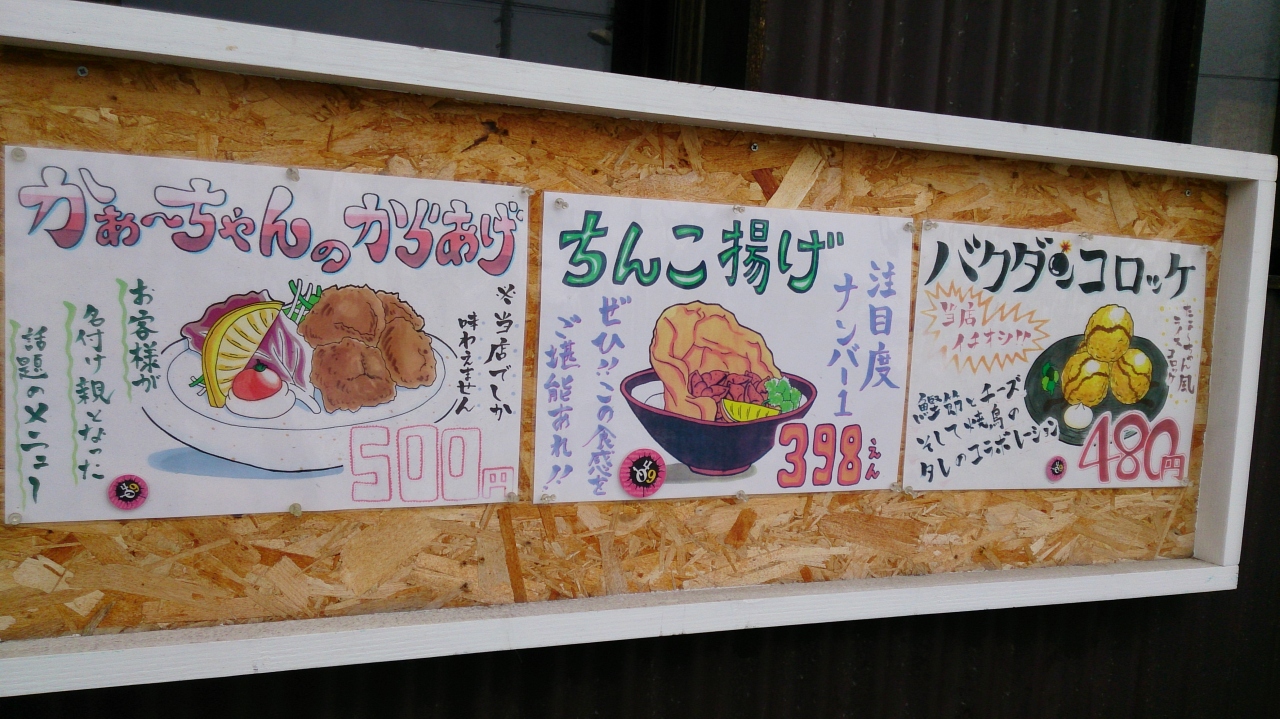 かぁ〜ちゃんのからあげ
※当店でしか
味わえません
お客様が
名付け親となった
話題のメニュー
500円
ちんこ揚げ
注目度
ナンバー1
ぜひ!!この食感を
ご堪能あれ!!
398えん
バクダンコロッケ
当店
イチオシ!!
鰹節とチーズ
そして焼鳥の
タレのコラボレーション
480円